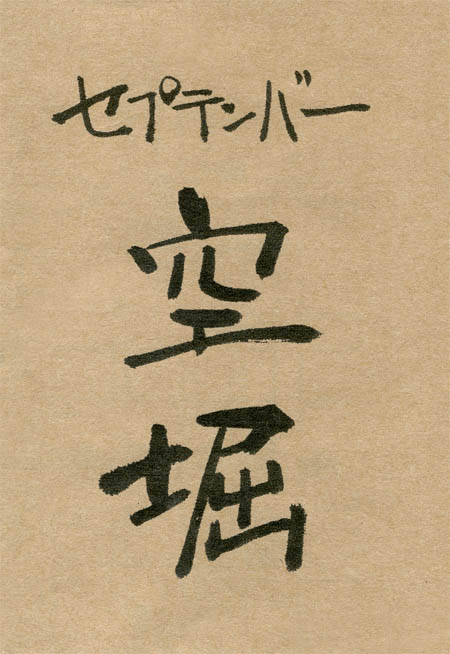 セプテンバー
空
堀